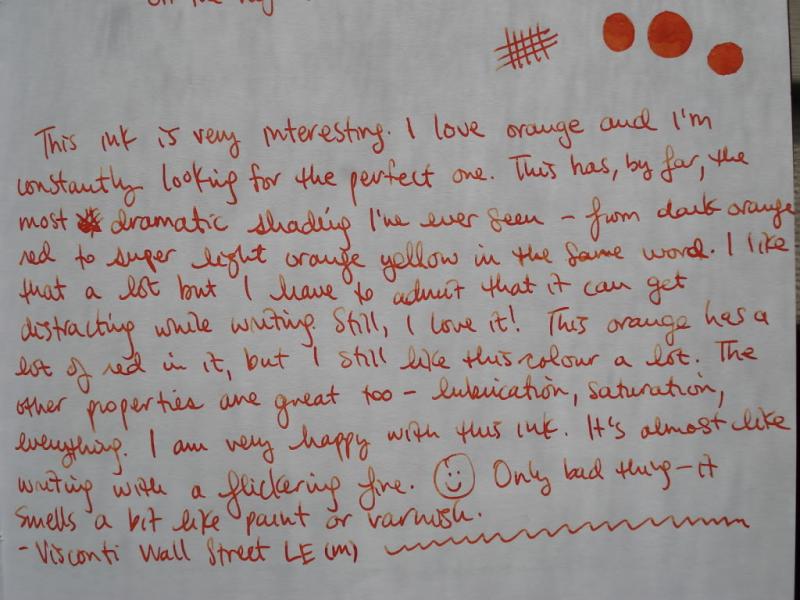 on the
This ink is very interesting. I love orange and I'm
constantly looking for the perfect one. This has, by far, the
most dramatic shading I've ever seen – from dark orange
red to super light orange yellow in the same word. I like
that a lot but I have to admit that it can get
distracting while writing. Still, I love it! This orange has a
lot of red in it, but I still like this colour a lot. The
other properties are great too – lubrication, saturation,
everything. I am very happy with this ink. It's almost like
writing with a flickering fire. Only bad thing – it
smells a bit like paint or varnish.
- Visconti Wall Street LE (m)